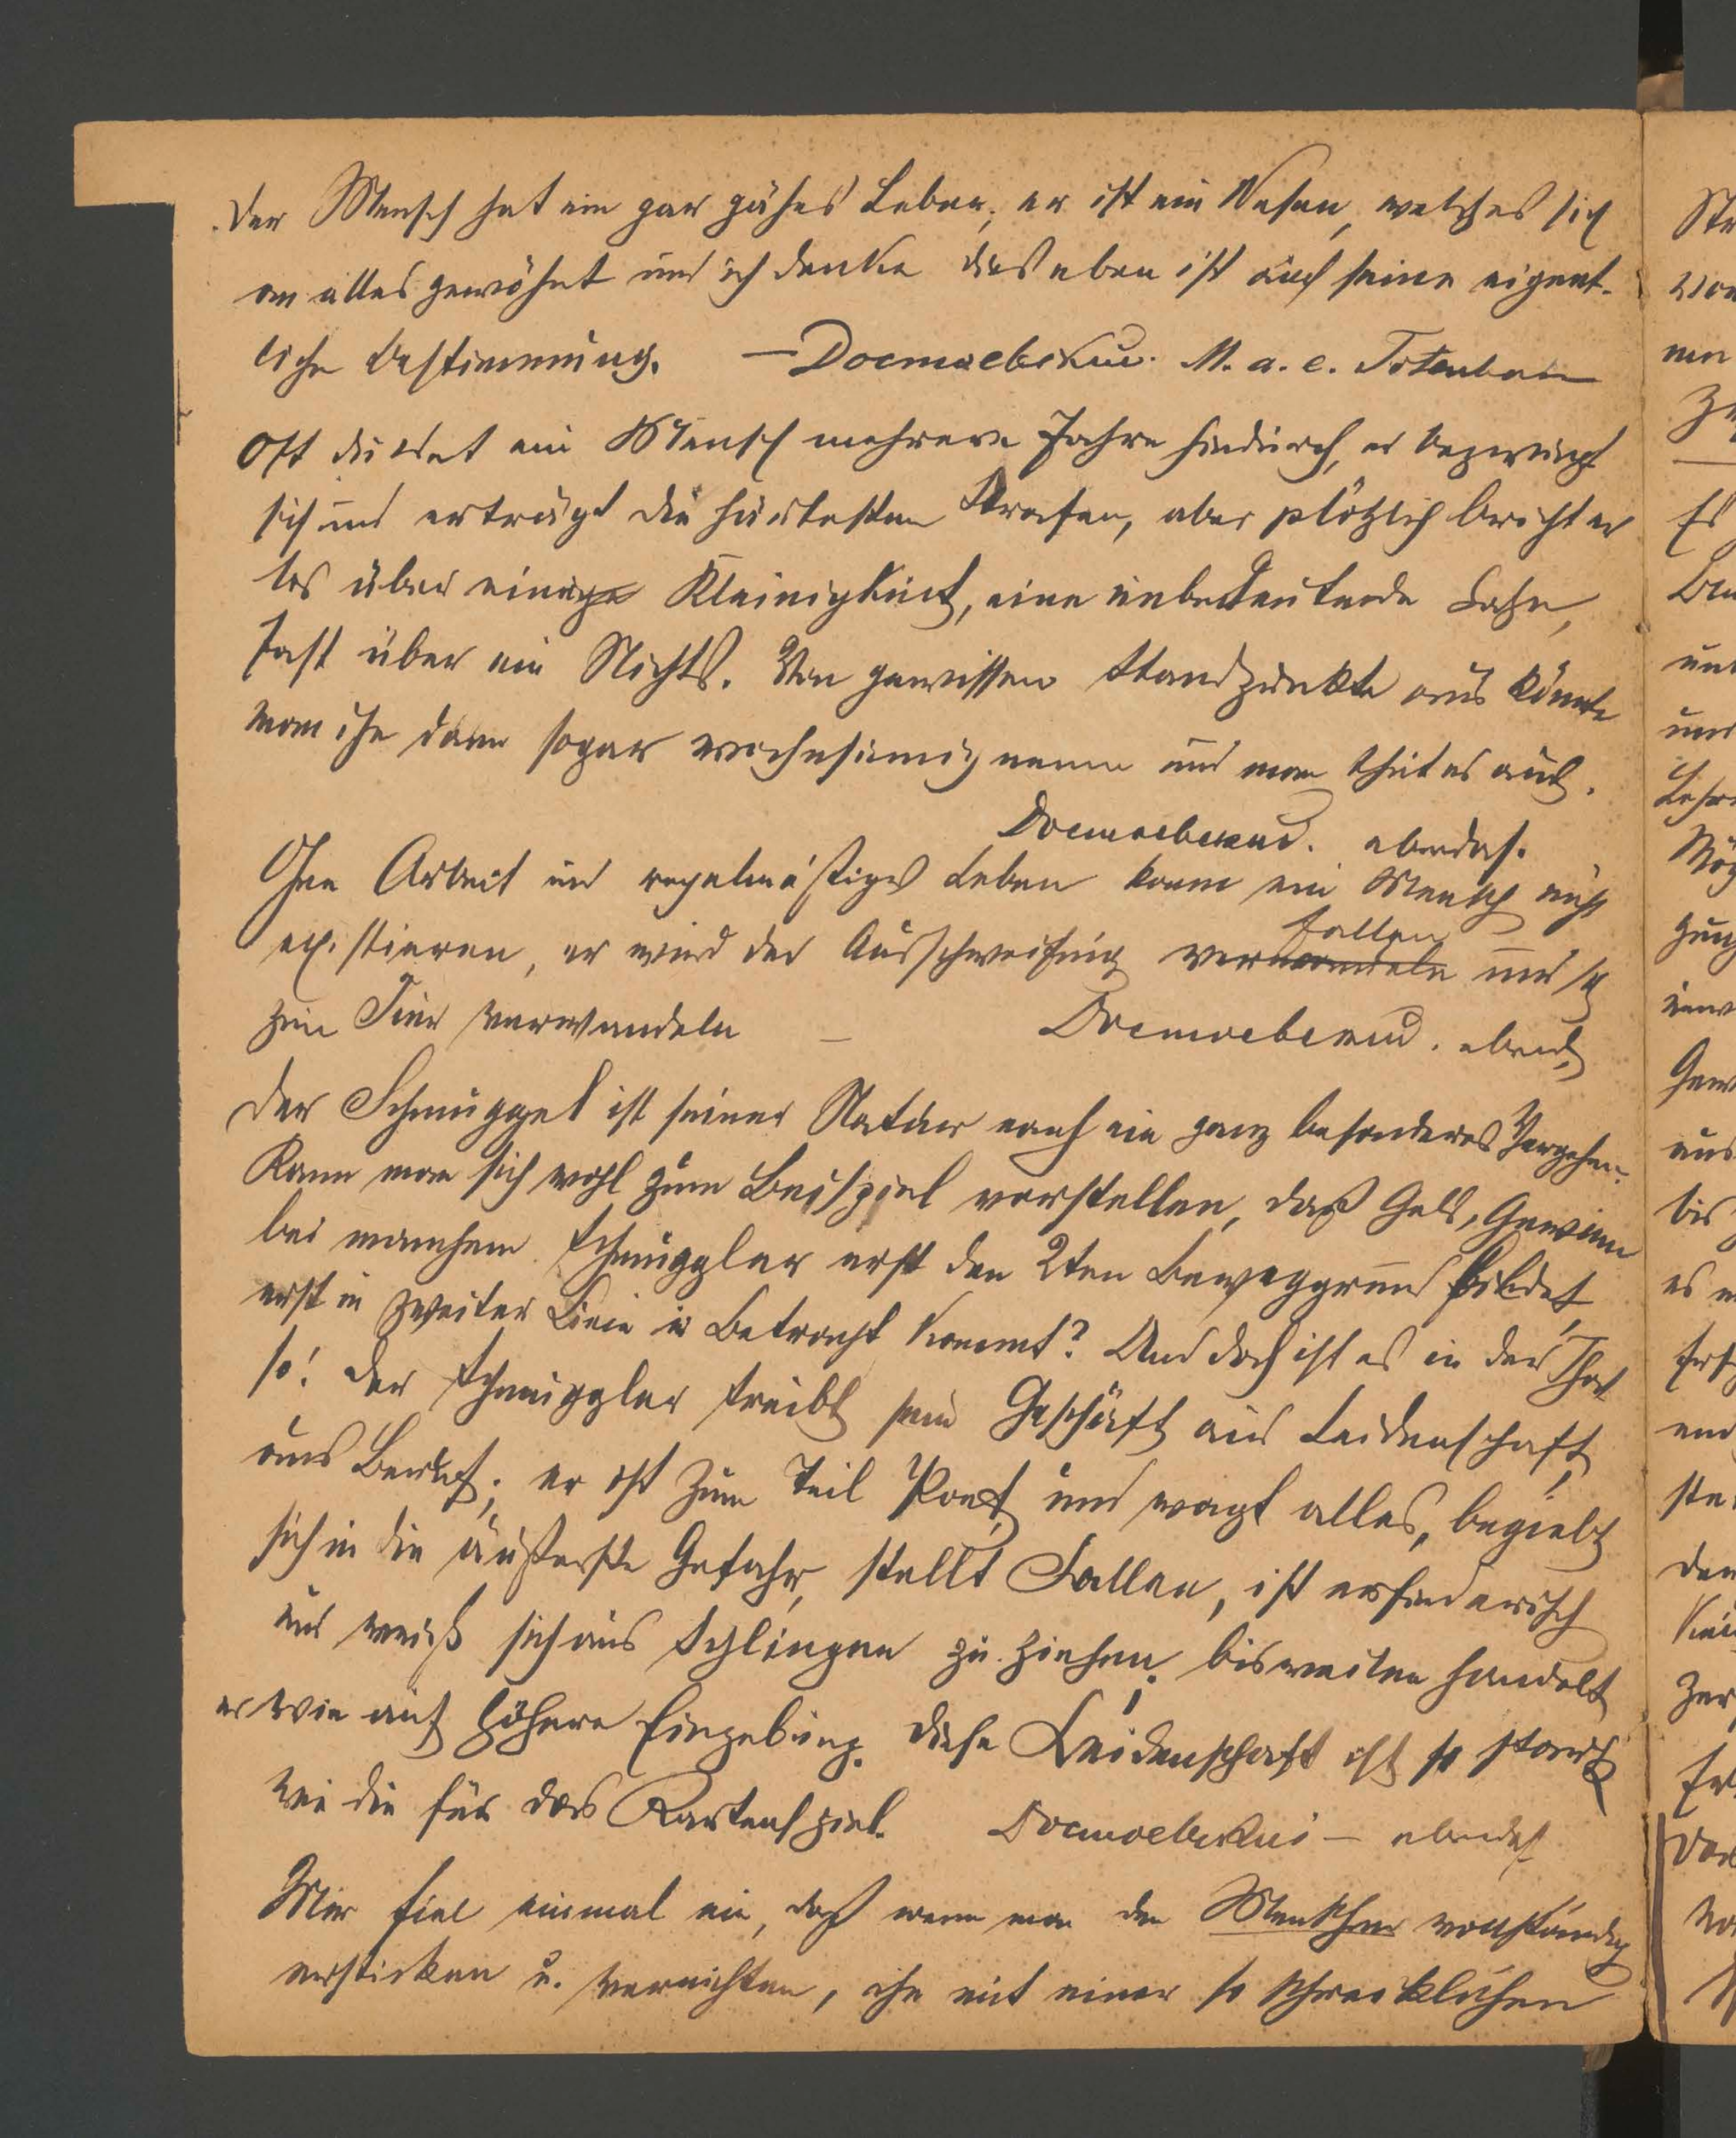 Der Mensch hat ein gar zähes Leben; er ist ein Wesen, welches sich
an alles gewöhnt und ich denke dies eben ist auch seine eigent-
liche Bestimmung. — Достоевский. M. a. e. Totenhaus
Oft duldet ein Mensch mehrere Jahre hindurch, er bezwingt
sich und erträgt die härtesten Strafen, aber plötzlich bricht er
los über einige Kleinigkeit, eine unbedeutende Sache,
fast über ein Nichts. Von gewissem Standpunkte aus könnte
man ihn dann sogar wahnsinnig nennen und man thut es auch.
Достоевский. ebendas.
Ohne Arbeit und regelmäßiges Leben kann ein Mensch nicht
fallen
existieren, er wird der Ausschweifung verwandeln und sich
zum Tier verwandeln — Достоевский. ebend.
Der Schmuggel ist seiner Natur nach ein ganz besonderes Vergehen.
Kann man sich wohl zum Beispiel vorstellen, daß Geld, Gewinn
bei manchem Schmuggler erst den 2ten Beweggrund bildet,
erst in zweiter Linie in Betracht kommt? Und doch ist es in der That
so! Der Schmuggler treibt sein Geschäft aus Leidenschaft,
aus Beruf; er ist zum Teil Poet und wagt alles, begiebt
sich in die äußerste Gefahr, stellt Fallen, ist erfinderisch
und weiß sich aus Schlingen zu ziehen; bisweilen handelt
er wie auf höhere Eingebung. Diese Leidenschaft ist so stark
wie die für das Kartenspiel. Достоевский — ebendas
Mir fiel einmal ein, daß wenn man den Menschen vollständig
ersticken u. vernichten, ihn mit einer so schrecklichen